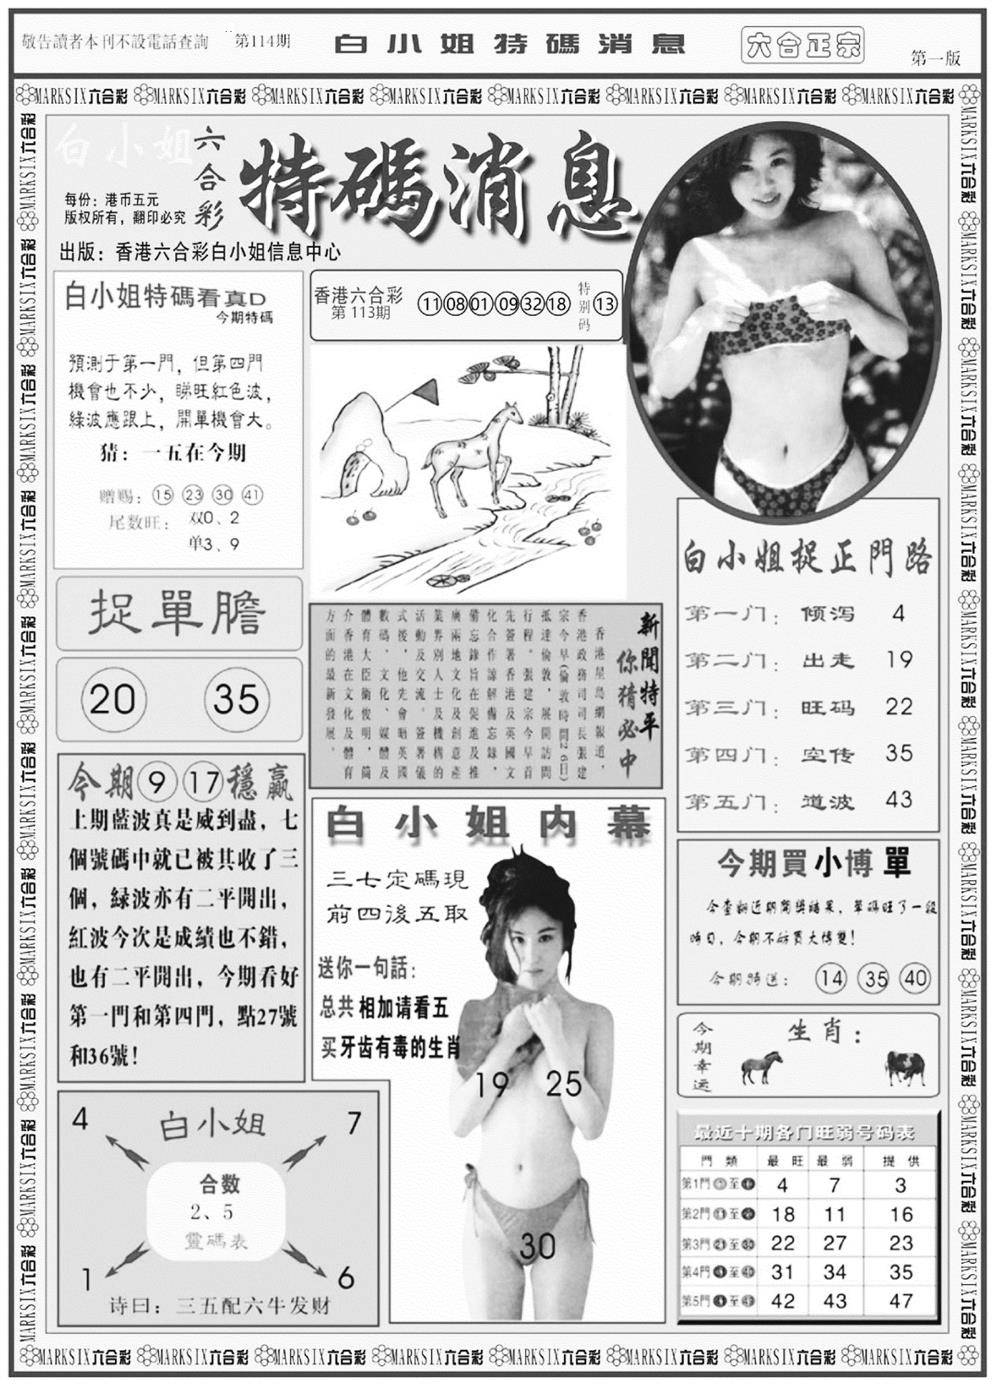 敬告讀者本刊不設電話查詢 第114期 白小姐特碼消息 六合正宗 第一版
MARKSIX六合彩 MARKSIX六合彩 MARKSIX六合彩 MARKSIX六合彩 MARKSIX六合彩 MARKSIX六合彩 MARKSIX六合彩 MARKSIX六合彩
白小姐 六合彩 特碼消息
每份：港币五元
版权所有，翻印必究
出版：香港六合彩白小姐信息中心
白小姐特碼看真D
今期特碼
預測于第一門，但第四門
機會也不少，睇旺紅色波，
綠波應跟上，開單機會大。
猜：一五在今期
赠赐：15 23 30 41
尾数旺：双0、2
单3、9
香港六合彩
第 113期
11 08 01 09 32 18 特别码 13
捉單膽
20 35
今期 9 17 穩贏
上期藍波真是威到盡，七
個號碼中就已被其收了三
個，緑波亦有二平開出，
紅波今次是成績也不錯，
也有二平開出，今期看好
第一門和第四門，點27號
和36號！
新聞特平
你猜必中
香港星島網報道，
香港政務司司長張建
宗今早(倫敦時間26日)
抵達倫敦，展開訪問
行程。張建宗今早首
先簽署香港及英國文
化合作諒解備忘錄，
備忘錄旨在促進及推
廣兩地文化及創意産
業界別人士及機構的
活動及交流。簽署儀
式後，他先會晤英國
數碼、文化、媒體及
體育大臣衛俊明，簡
介香港在文化及體育
方面的最新發展。
白小姐捉正門路
第一门：倾泻 4
第二门：出走 19
第三门：旺码 22
第四门：空传 35
第五门：道波 43
白小姐内幕
三七定碼現
前四後五取
送你一句話：
总共相加请看五
买牙齿有毒的生肖
19 25
30
今期買小博單
今查翻近期開獎結果，單碼旺了一段
時旬，今期不妨買大博雙！
今期特送：14 35 40
今期幸运 生肖：
白小姐
4 7
合数
2、5
靈碼表
1 6
诗曰：三五配六牛发财
最近十期各门旺弱号码表
門類 最旺 最弱 提供
第1門 至 4 7 3
第2門 至 18 11 16
第3門 至 22 27 23
第4門 至 31 34 35
第5門 至 42 43 47
MARKSIX六合彩 MARKSIX六合彩 MARKSIX六合彩 MARKSIX六合彩 MARKSIX六合彩 MARKSIX六合彩 MARKSIX六合彩 MARKSIX六合彩